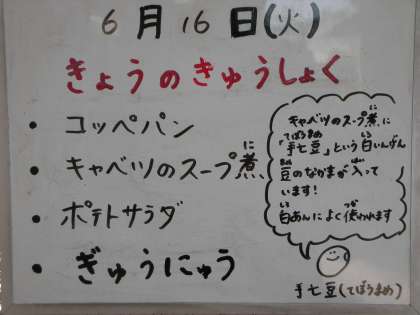 6月16日(火)
きょうのきゅうしょく
・コッペパン
・キャベツのスープ煮
に
・ポテトサラダ
・ぎゅうにゅう
キャベツのスープ煮に
に
「手亡豆」という白いんげん
てぼうまめ
しろ
豆のなかまが入って
まめ
はい
います!
白あんによく使われます
しろ
つか
手亡豆(てぼうまめ)